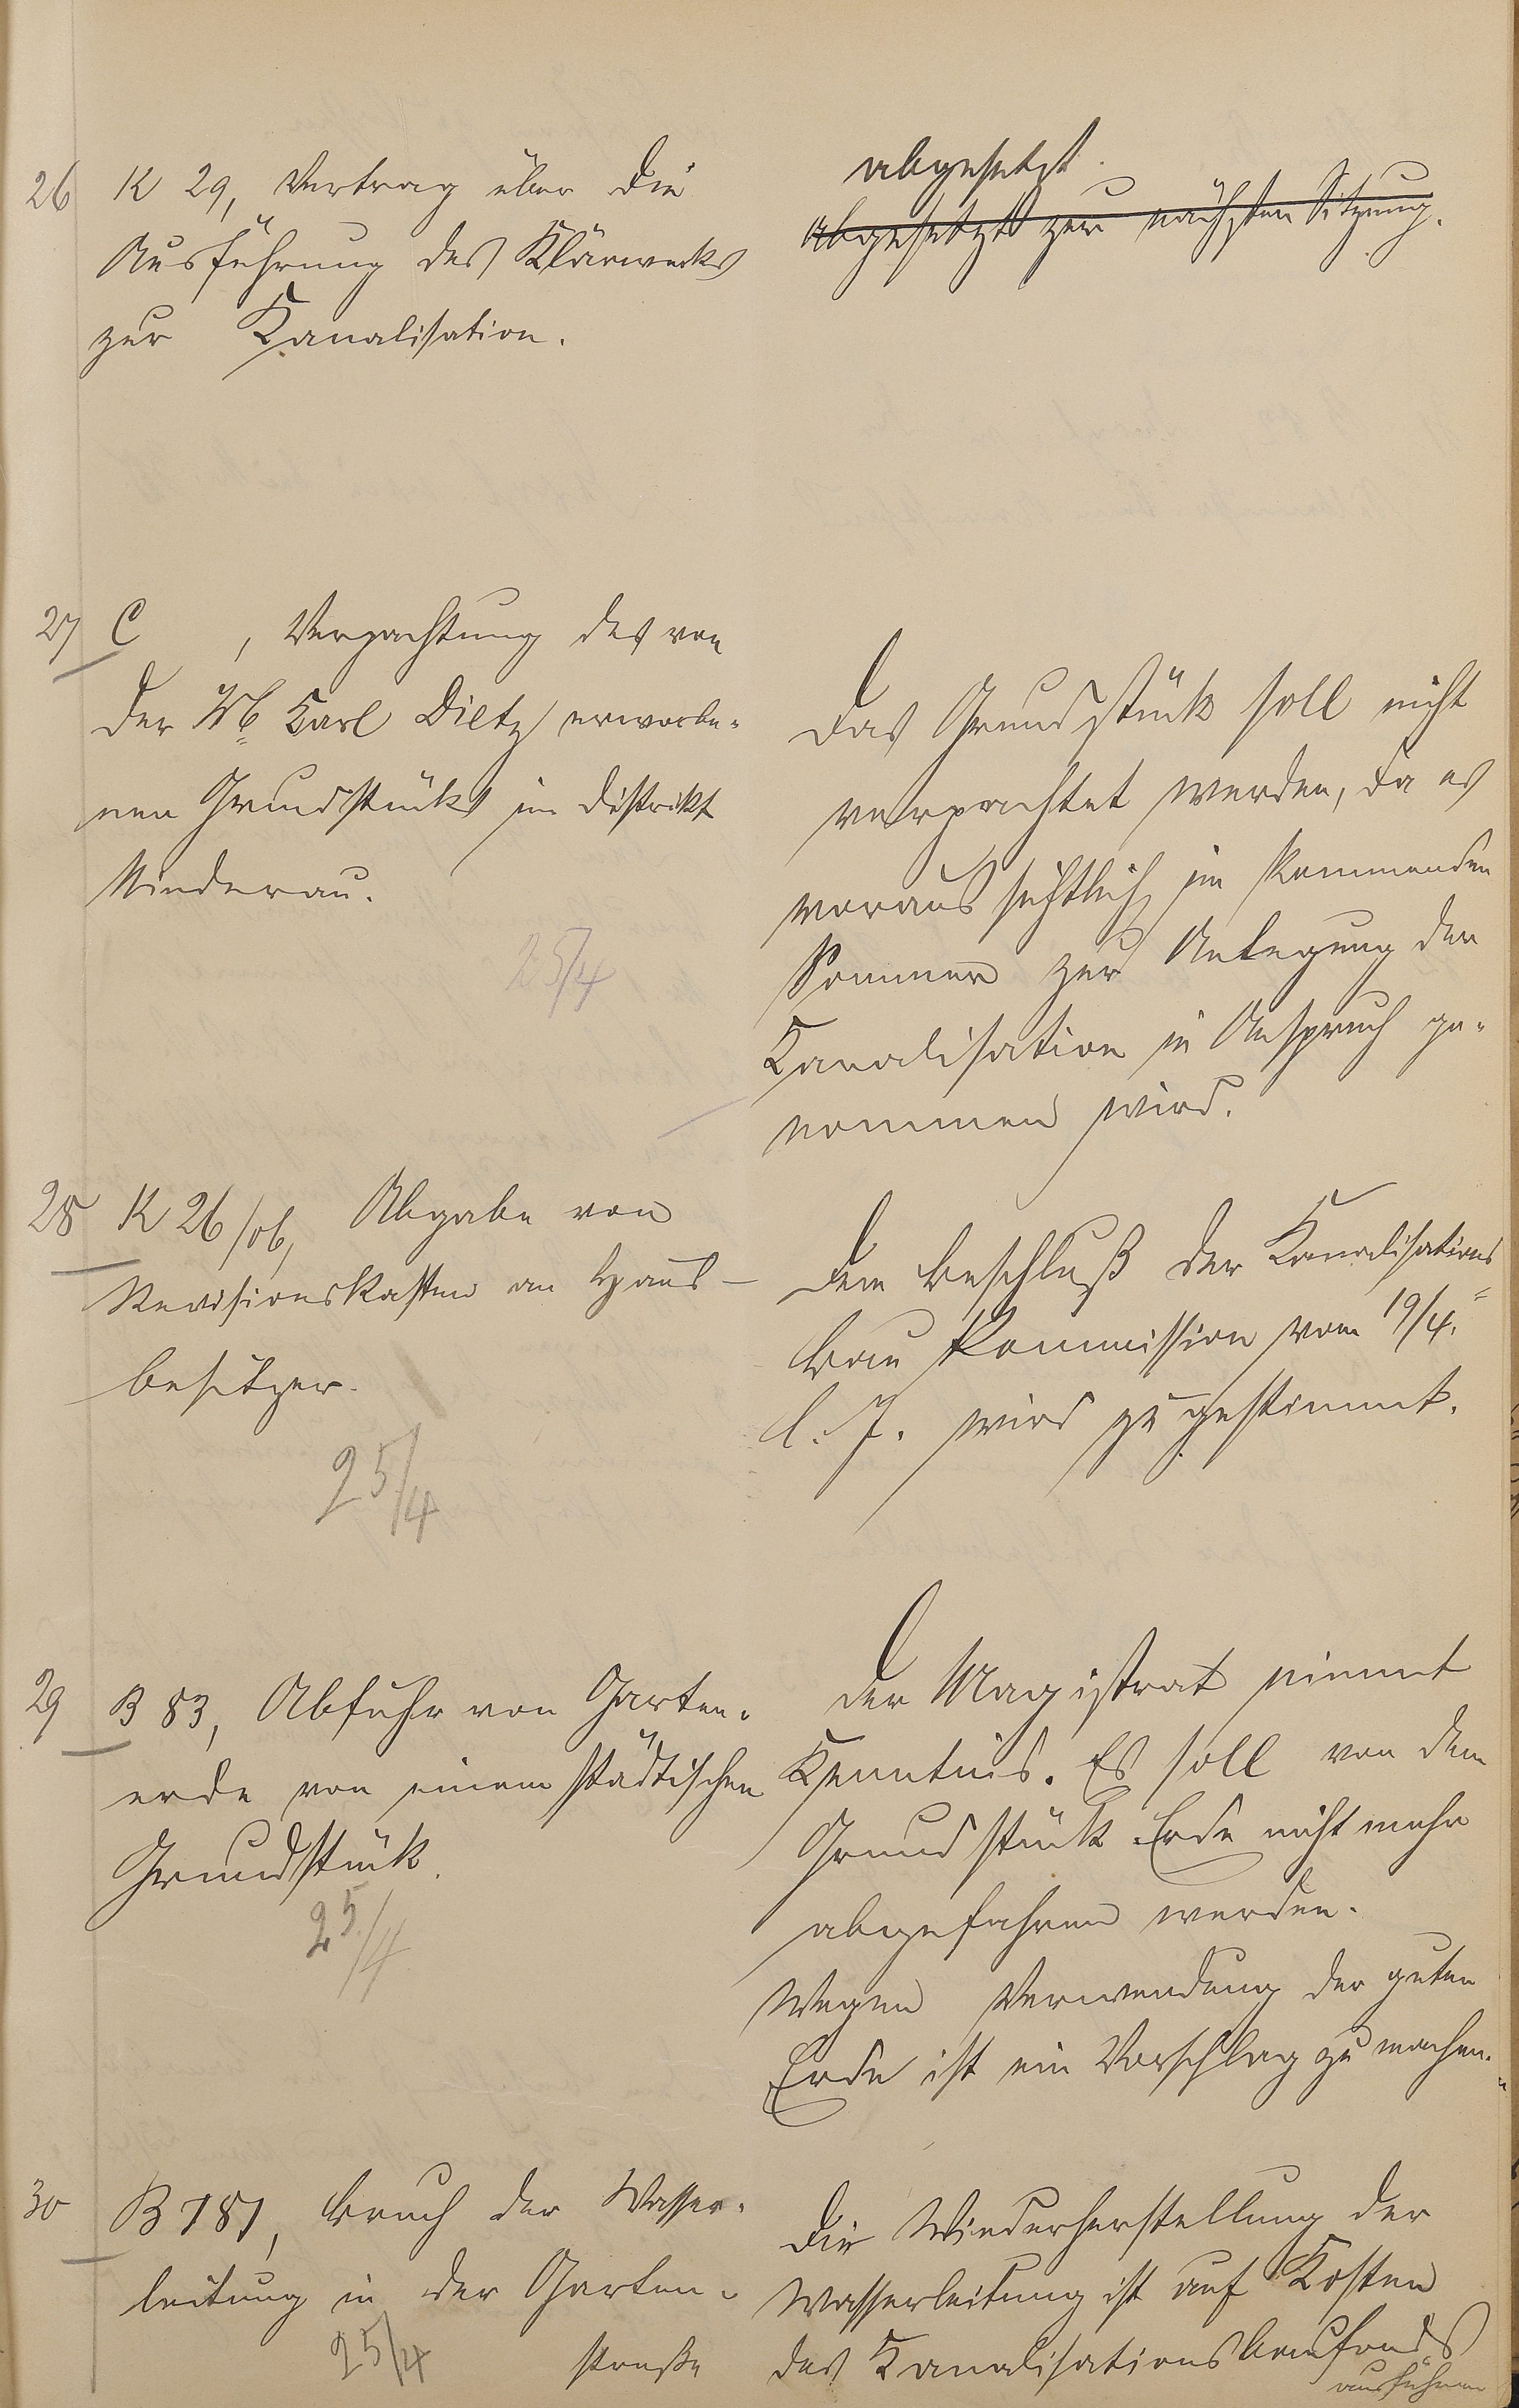 26 K 29, Vertrag über die
Ausführung des Klärwerks
zur Kanalisation.
abgesetzt.
Abgesetzt zur nächsten Sitzung.
27 C , Verpachtung des von
der Karl Dietz erworbe-
nen Grundstücks im Distrikt
Niederau.
25/4
Das Grundstück soll nicht
verpachtet werden, da es
voraussichtlich im kommenden
Sommer zur Anlegung der
Kanalisation in Anspruch ge-
nommen wird.
28 K 26/06, Abgabe von
Revisionskasten an Haus-
besitzer.
25/4
Dem Beschluß der Kanalisations
bau Kommission vom 19/4.
l. J. wird zugestimmt.
29 B 83, Abfuhr von Garten-
erde von einem städtischen
Grundstück.
25/4
Der Magistrat nimmt
Kenntnis. Es soll von dem
Grundstück Erde nicht mehr
abgefahren werden.
Wegen Verwendung der guten
Erde ist ein Vorschlag zu machen.
30 B 781, Bruch der Wasser-
leitung in der Garten-
straße
25/4
Die Wiederherstellung der
Wasserleitung ist auf Kosten
des Kanalisationsbaufonds
ausführen